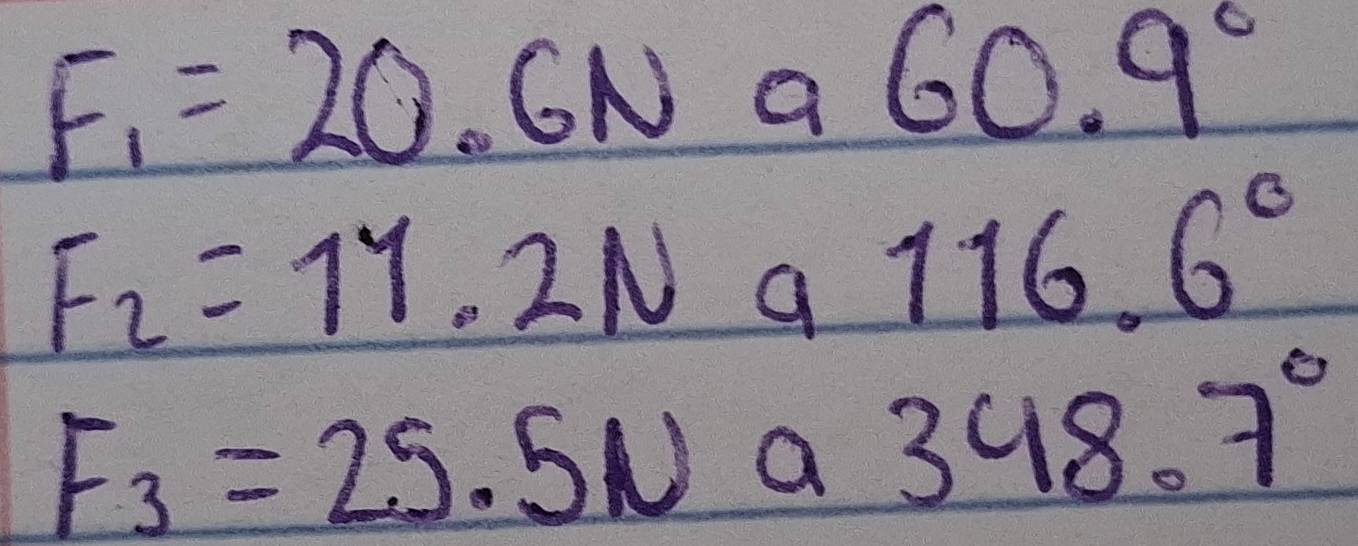 F₁ = 20.6N a 60.9°
F₂ = 11.2N a 116.6°
F₃ = 25.5N a 348.7°